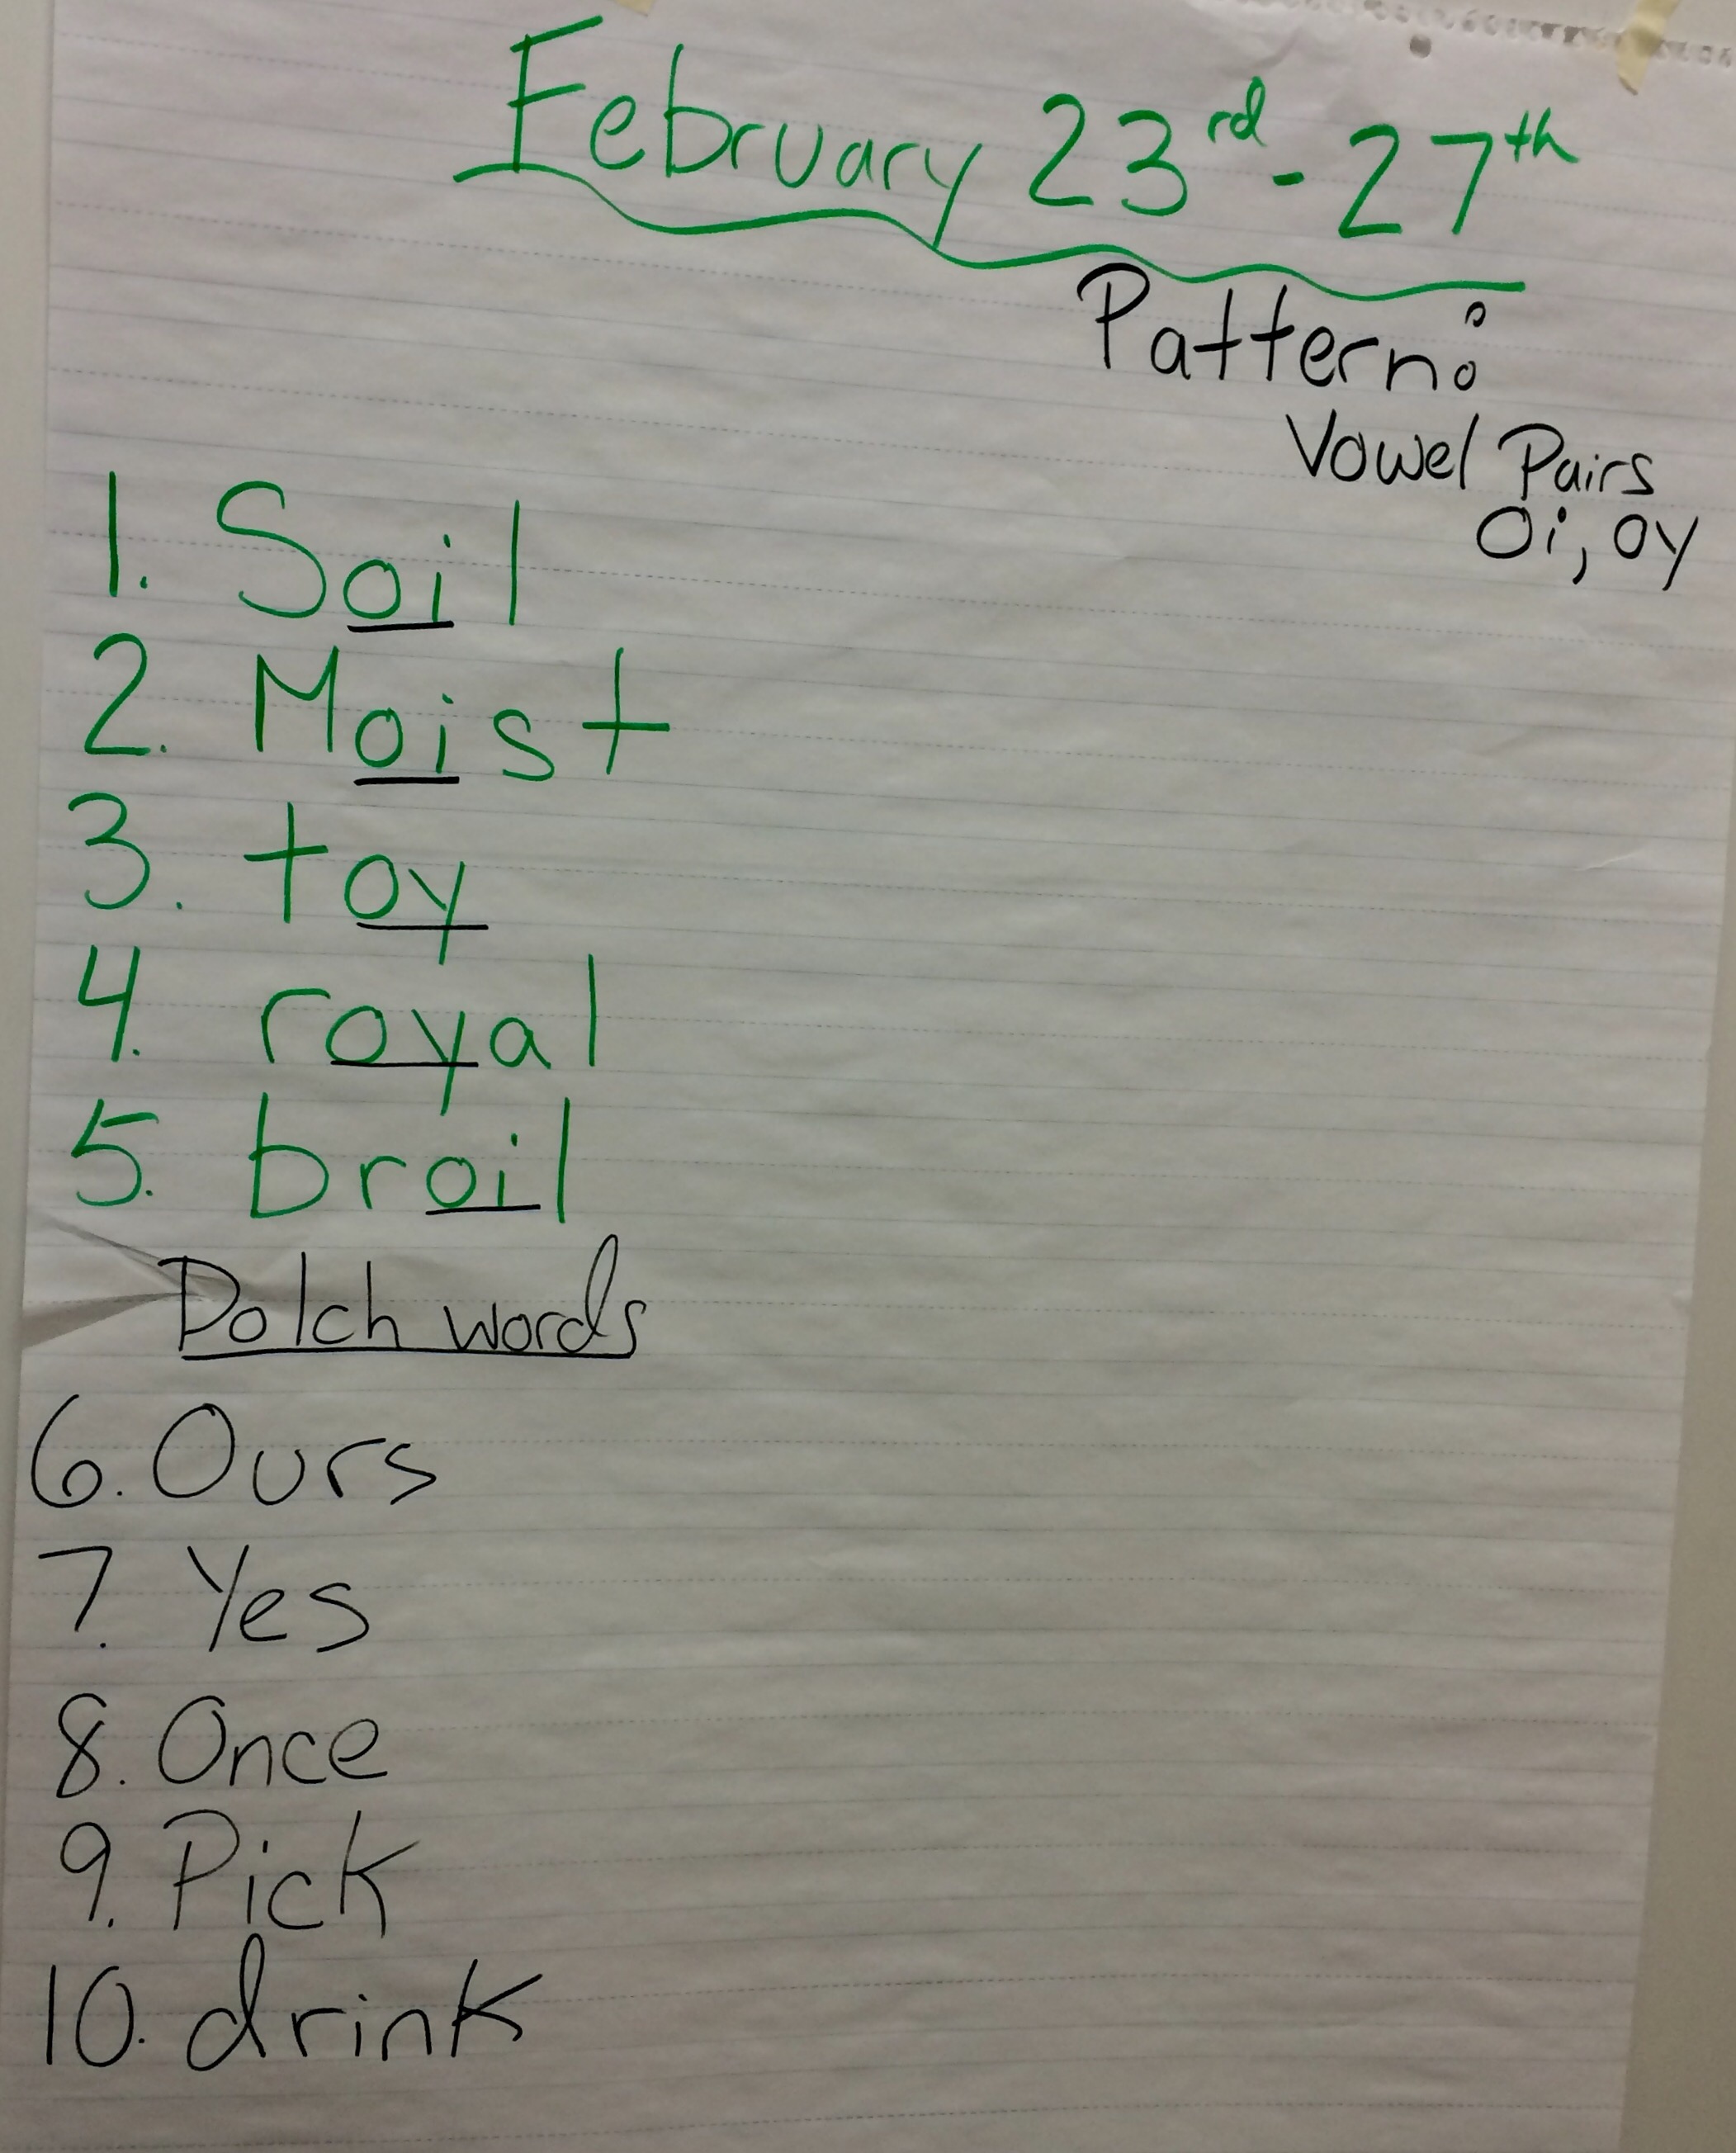 February 23rd - 27th
Pattern:
Vowel Pairs
Oi, oy
1. Soil
2. Moist
3. toy
4. royal
5. broil
Dolch words
6. Ours
7. Yes
8. Once
9. Pick
10. drink